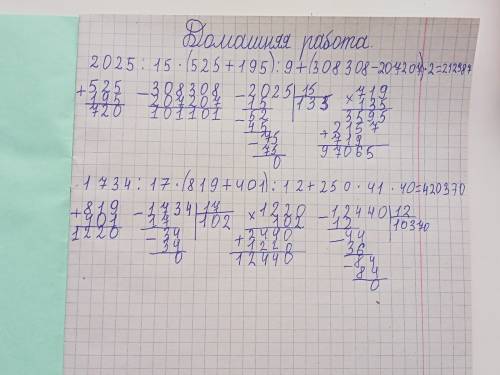 Домашняя работа.
2025 : 15 · (525 + 195) : 9 + (308308 - 207207) · 2 = 212987
+ 525 - 308308 - 2025 | 15 × 719
195 207207 15 135 135
720 101101 - 52 3595
45 + 2157
- 75 719
75 97065
0
1734 : 17 · (819 + 401) : 12 + 250 · 41 · 40 = 420370
+ 819 - 1734 | 17 × 1220 - 12440 | 12
401 17 102 102 12 10370
1220 - 34 + 2440 - 44
34 1220 36
0 12440 - 84
84
0